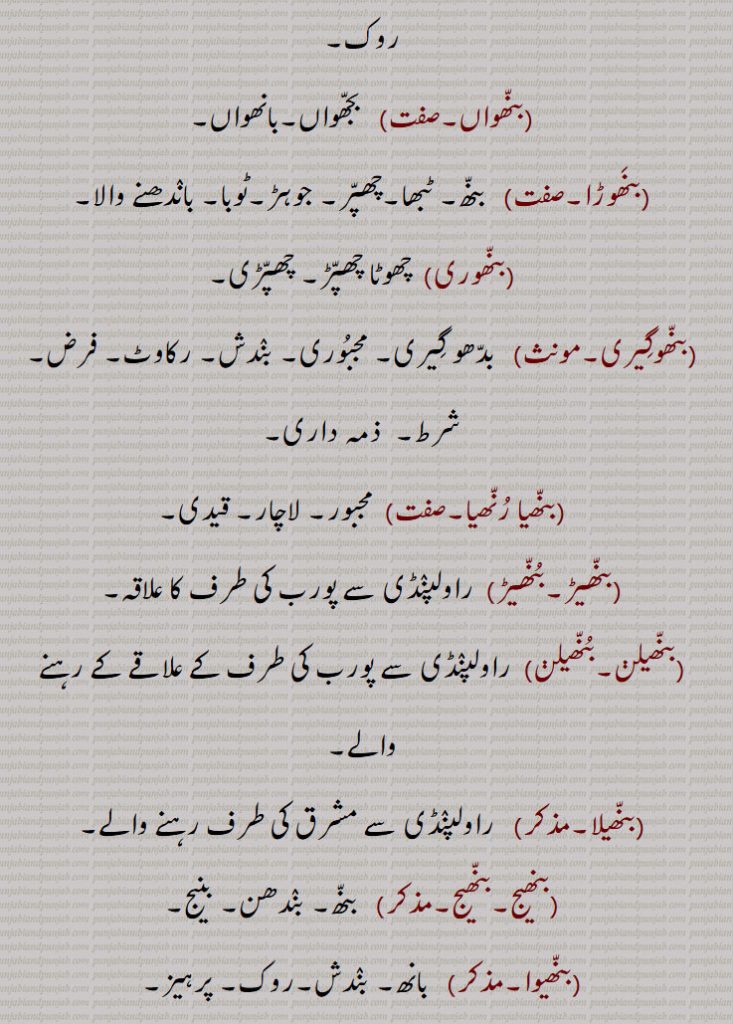 روک۔
(بنّھواں۔صفت) بجھّواں۔بانھواں۔
(بنَھوڑا۔صفت) بنھّ۔ ٹبھا۔چھپّر۔ جوہڑ۔ٹوبا۔ بانْدھنے والا۔
(بنّھوری) چھوٹا چھپّڑ۔ چھپّڑی۔
(بنّھوگِیری۔مونث) بدّھو گِیری۔ مجبُوری۔ بنْدش۔ رکاوٹ۔ فرض۔
شرط۔ ذمہ داری۔
(بنّھیا رُنّھیا۔صفت) مجبور۔ لاچار۔ قیدی۔
(بنّھیڑ۔بُنّھیڑ) راولپنْڈی سے پورب کی طرف کا علاقہ۔
(بنّھیلݨ۔بُنّھیلݨ) راولپنْڈی سے پورب کی طرف کے علاقے کے رہنے
والے۔
(بنّھیلا۔مذکر) راولپنْڈی سے مشرق کی طرف رہنے والے۔
(بنھیج۔بنّھیج۔مذکر) بنھّ۔ بنْدھن۔ بنیج۔
(بنّھیوا۔مذکر) بانھ۔ بنْدش۔روک۔ پرہیز۔